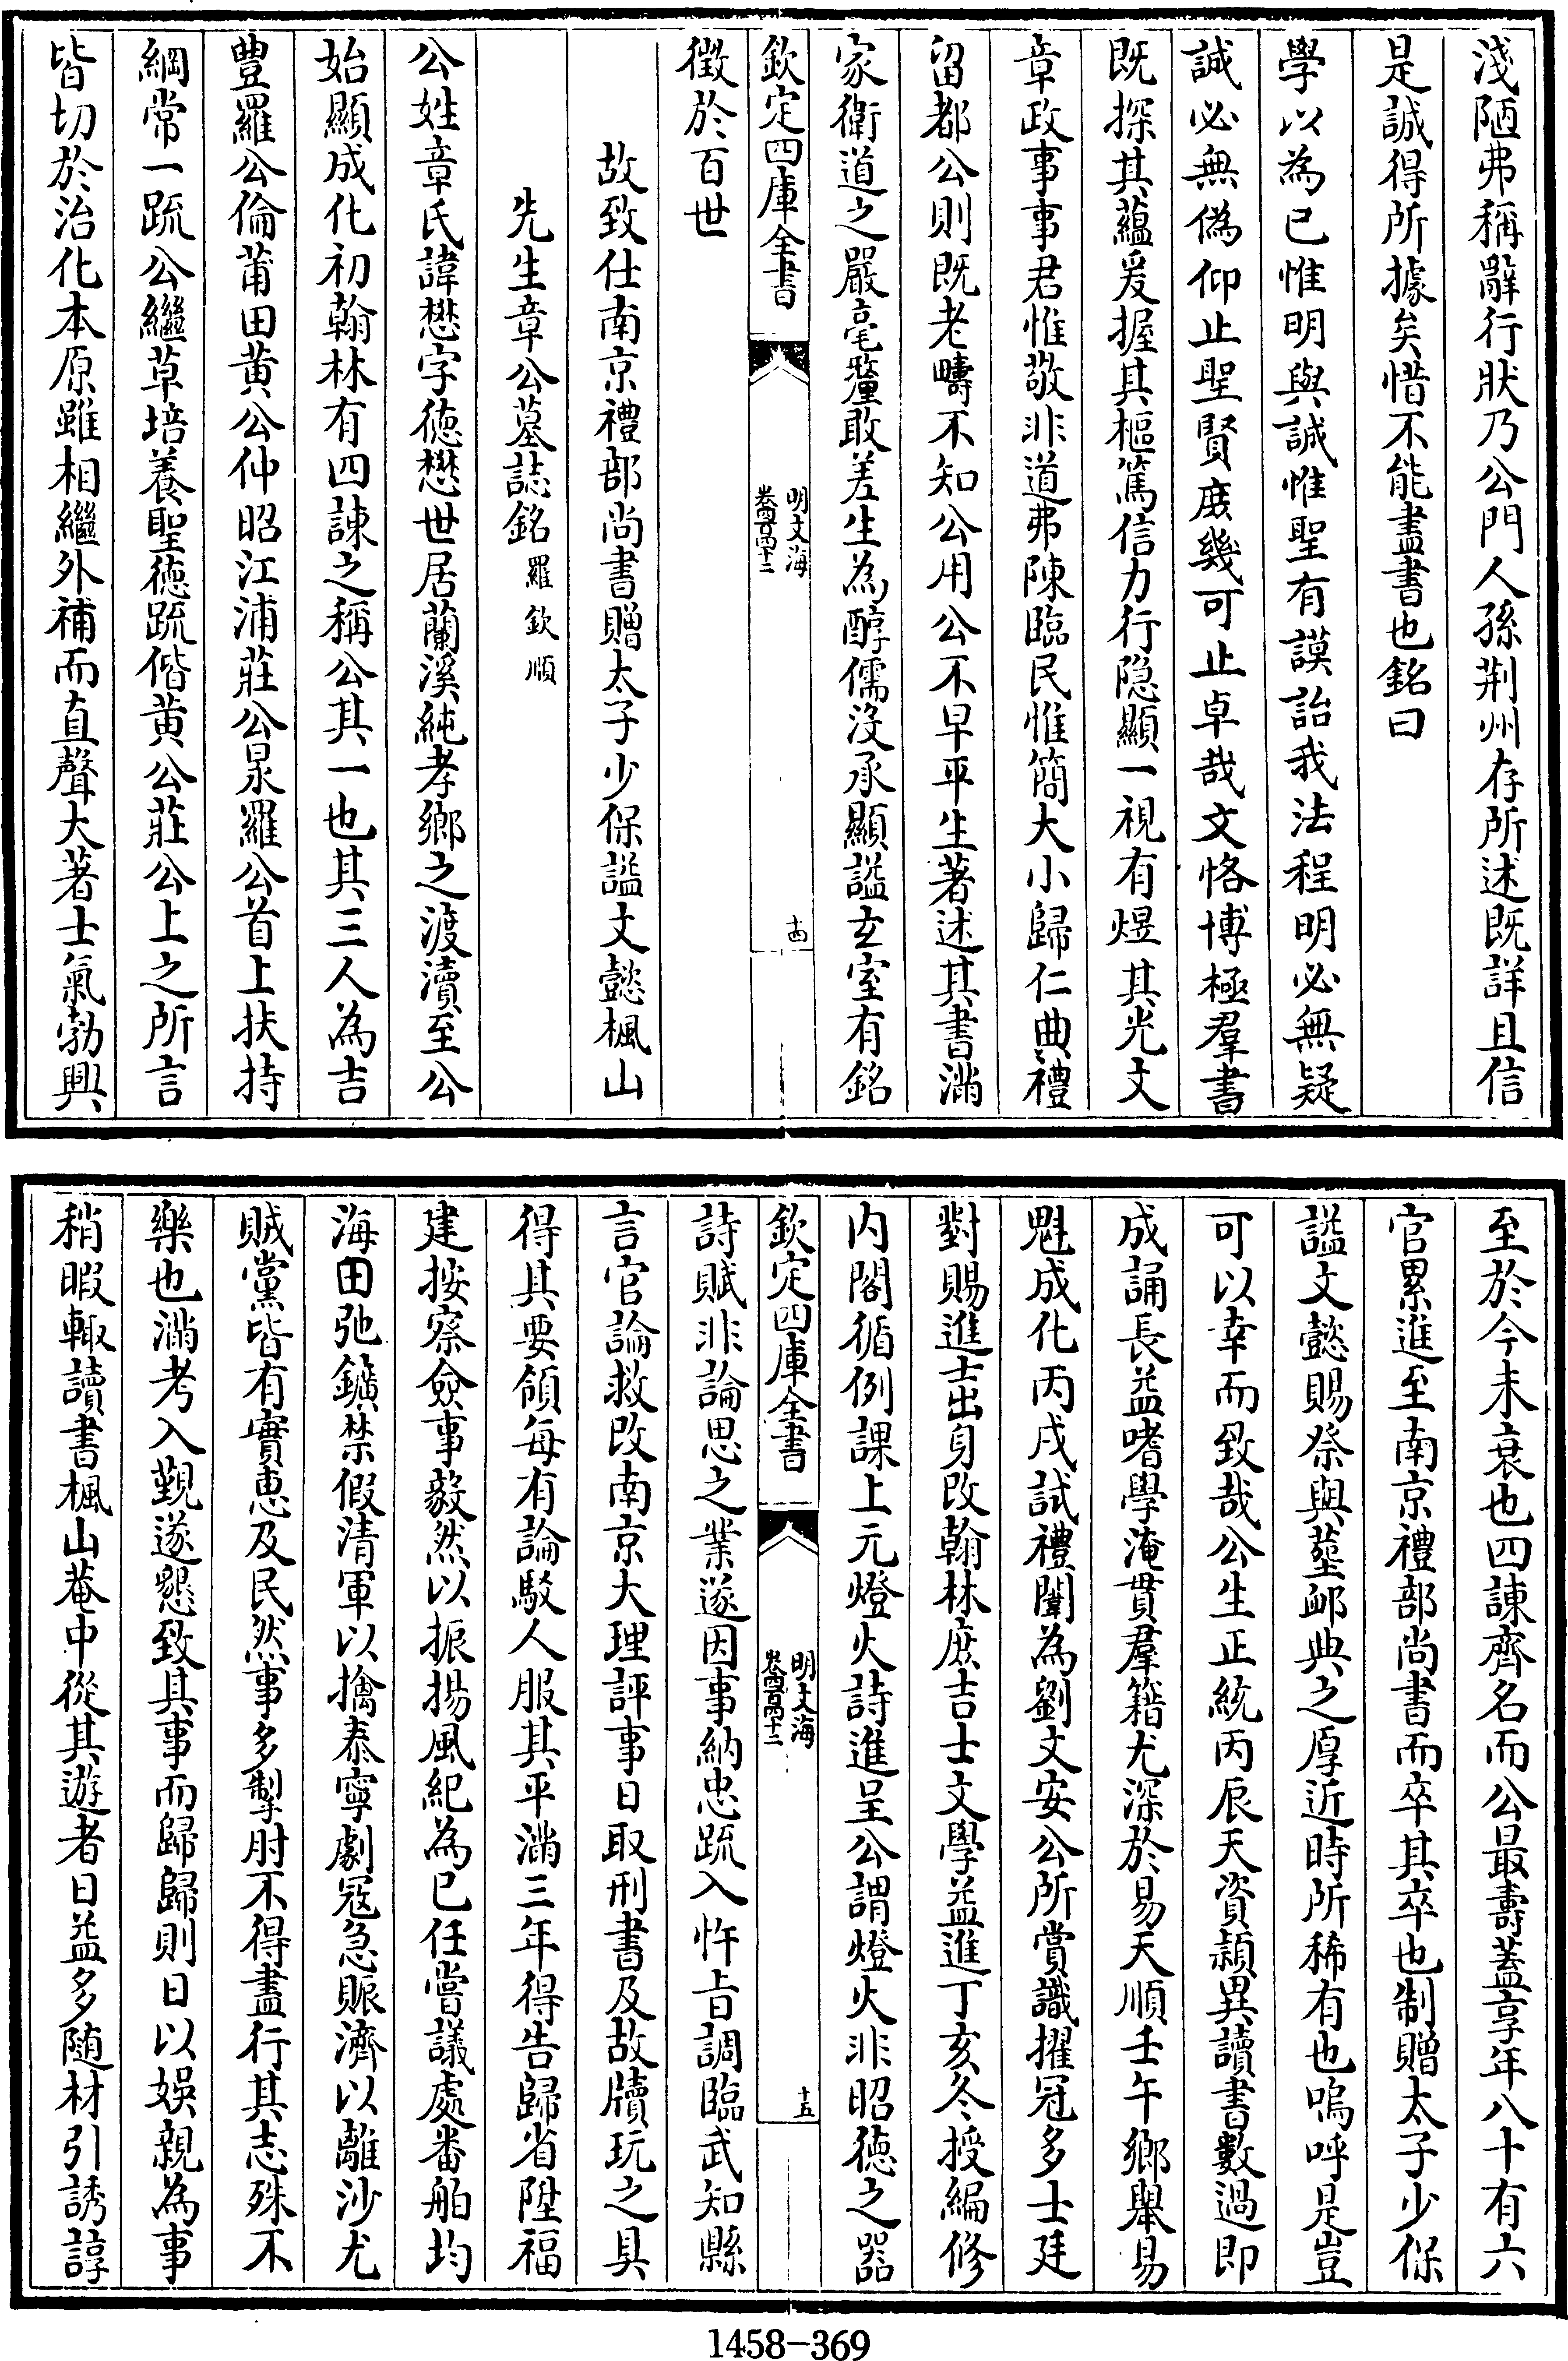 淺陋弗稱辭行狀乃公門人孫荆州存所述既詳且信
是誠得所據矣惜不能盡書也銘曰
學以為已惟明與誠惟聖有謨詒我法程明必無疑
誠必無偽仰止聖賢庻幾可止卓哉文恪博極羣書
既探其蘊爰握其樞篤信力行隠顯一視有煜其光文
章政事事君惟敬非道弗陳臨民惟簡大小歸仁典禮
留都公則既老疇不知公用公不早平生著述其書滿
家衛道之嚴毫釐敢差生為醇儒沒承顯諡玄室有銘
欽定四庫全書
明文海
卷四百四十二
十四
徵於百世
故致仕南京禮部尚書贈太子少保諡文懿楓山
先生章公墓誌銘 羅欽順
公姓章氏諱懋字徳懋世居蘭溪純孝鄉之渡瀆至公
始顯成化初翰林有四諫之稱公其一也其三人為吉
豐羅公倫莆田黄公仲昭江浦莊公㫤羅公首上扶持
綱常一疏公繼草培養聖徳疏偕黄公莊公上之所言
皆切於治化本原雖相繼外補而直聲大著士氣勃興
至於今未衰也四諫齊名而公最壽蓋享年八十有六
官累進至南京禮部尚書而卒其卒也制贈太子少保
諡文懿賜祭與塟䘏典之厚近時所稀有也嗚呼是豈
可以幸而致哉公生正統丙辰天資頴異讀書數過即
成誦長益嗜學淹貫羣籍尤深於易天順壬午鄉舉易
魁成化丙戌試禮闈為劉文安公所賞識擢冠多士廷
對賜進士出身改翰林庶吉士文學益進丁亥冬授編修
内閣循例課上元燈火詩進呈公謂燈火非昭徳之器
欽定四庫全書
明文海
卷四百四十二
十五
詩賦非論思之業遂因事納忠疏入忤㫖調臨武知縣
言官論救改南京大理評事日取刑書及故牘玩之具
得其要領每有論駮人服其平滿三年得告歸省陞福
建按察僉事毅然以振揚風紀為已任嘗議處番舶均
海田弛鑛禁假清軍以擒泰寧劇冦急賑濟以離沙尤
賊黨皆有實恵及民然事多掣肘不得盡行其志殊不
樂也滿考入覲遂懇致其事而歸歸則日以娛親為事
稍暇輙讀書楓山菴中從其遊者日益多随材引誘諄
1458-369